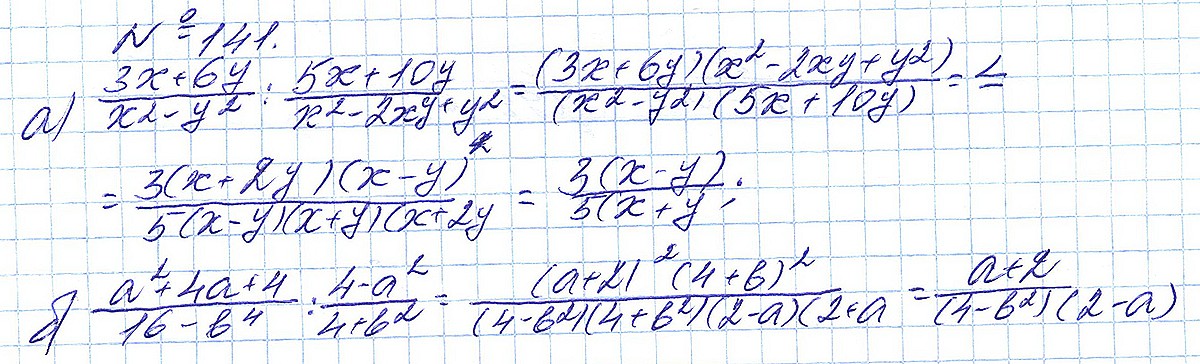 № 141.
а) (3x+6y)/(x²-y²) : (5x+10y)/(x²-2xy+y²) = ((3x+6y)(x²-2xy+y²))/((x²-y²)(5x+10y)) = 
= (3(x+2y)(x-y)²)/(5(x-y)(x+y)(x+2y) = (3(x-y))/(5(x+y);
б) (a²+4a+4)/(16-b⁴) : (4-a²)/(4+b²) = ((a+2)²(4+b)²)/((4-b²)(4+b²)(2-a)(2+a) = (a+2)/((4-b²)(2-a))